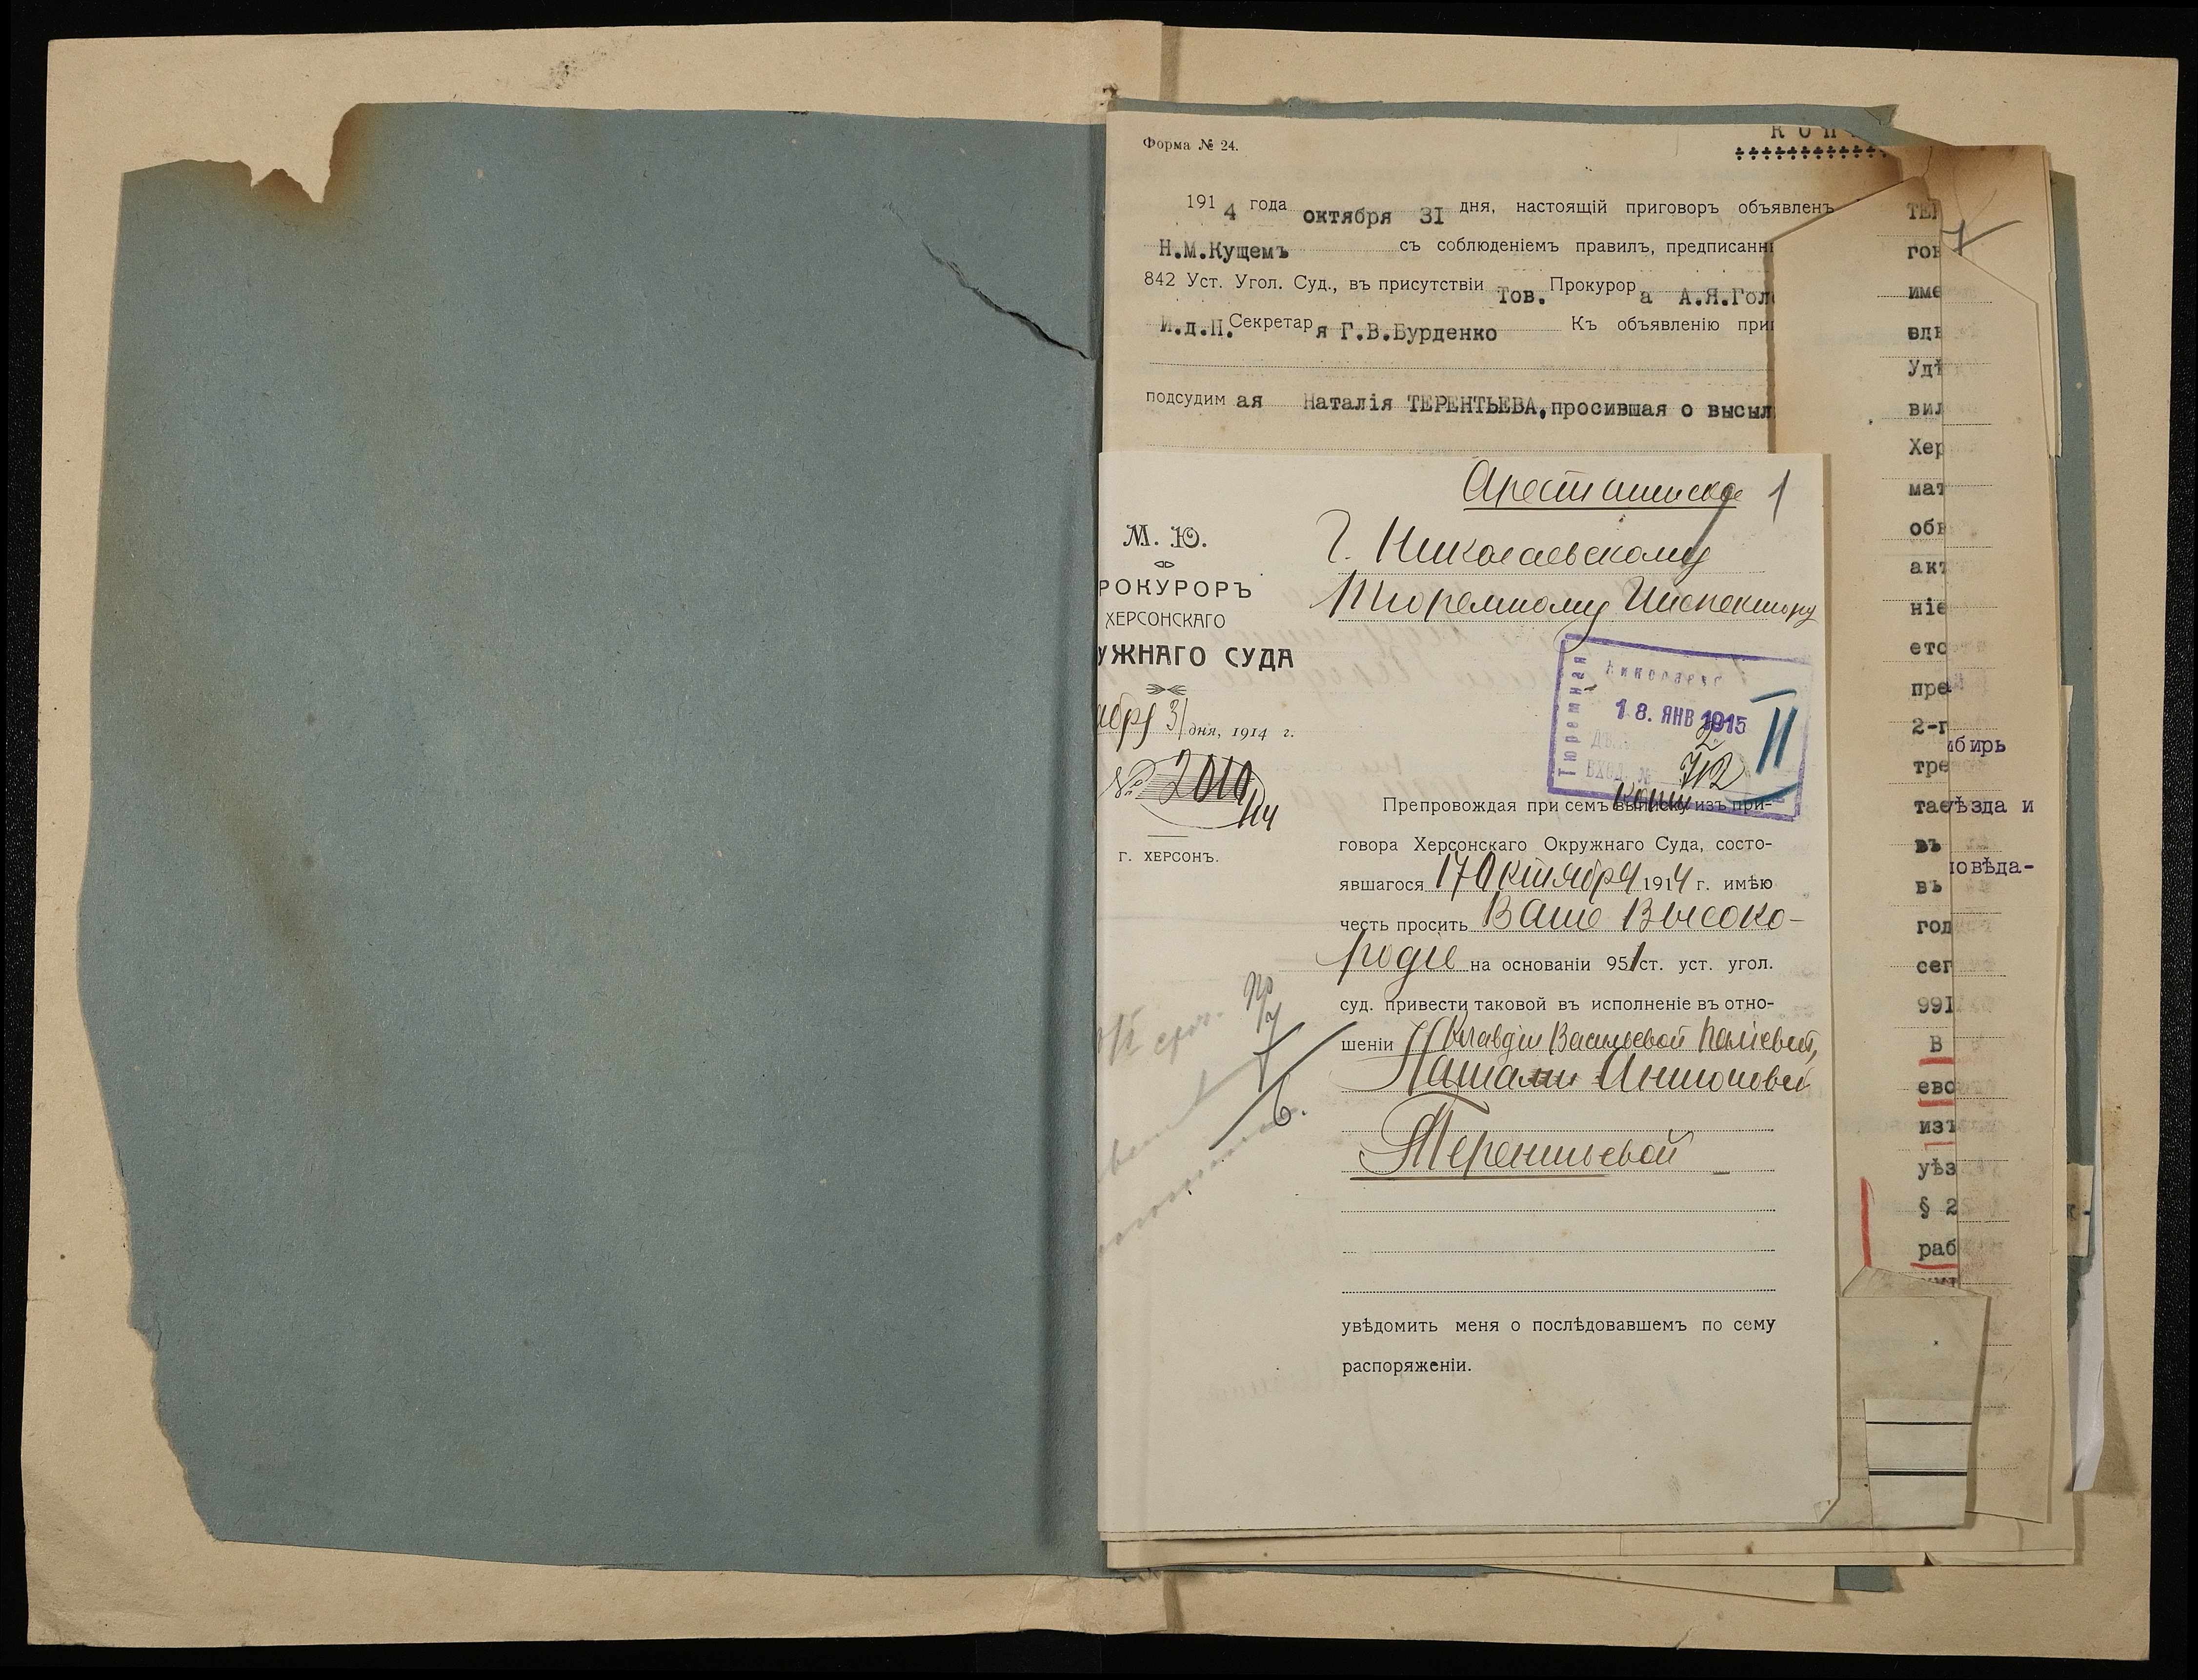 Форма № 24.
1914 года октября 31 дня, настоящій приговоръ объявленъ
Н.М.Кущемъ съ соблюденіемъ правилъ, предписанн
842 Уст. Угол. Суд., въ присутствіи Тов. Прокурора А.Я.Гол
И.д.П. Секретаря Г.В.Бурденко Къ объявленію при
подсудимая Наталія ТЕРЕНТЬЕВА, просившая о высыл
Арестантское 1
М. Ю.
РОКУРОРЪ
ХЕРСОНСКАГО
УЖНАГО СУДА
абря 31 дня, 1914 г.
№ 2010
Г. ХЕРСОНЪ.
Г. Николаевскому
Тюремному Инспектору
Тюремная
18. ЯНВ 1915
ВХОД. №
712
II
Препровождая при семъ выписку копію изъ при-
говора Херсонскаго Окружнаго Суда, состо-
явшагося 17 Октября 1914 г. имѣю
честь просить Ваше Высоко-
родіе на основаніи 951 ст. уст. угол.
суд. привести таковой въ исполненіе въ отно-
шеніи Клавдіи Васильевой
Наталіи Антоновой
Терентьевой
увѣдомить меня о послѣдовавшемъ по сему
распоряженіи.
ТЕР
гов
име
едь
Удѣ
вил
Хер
мат
обв
акт
ніе
ето
пре
2-г
тре
та
въ
въ
год
сег
991
В
ево
изъ
уѣз
§ 2
раб
ибирь
уѣзда и
повѣда-